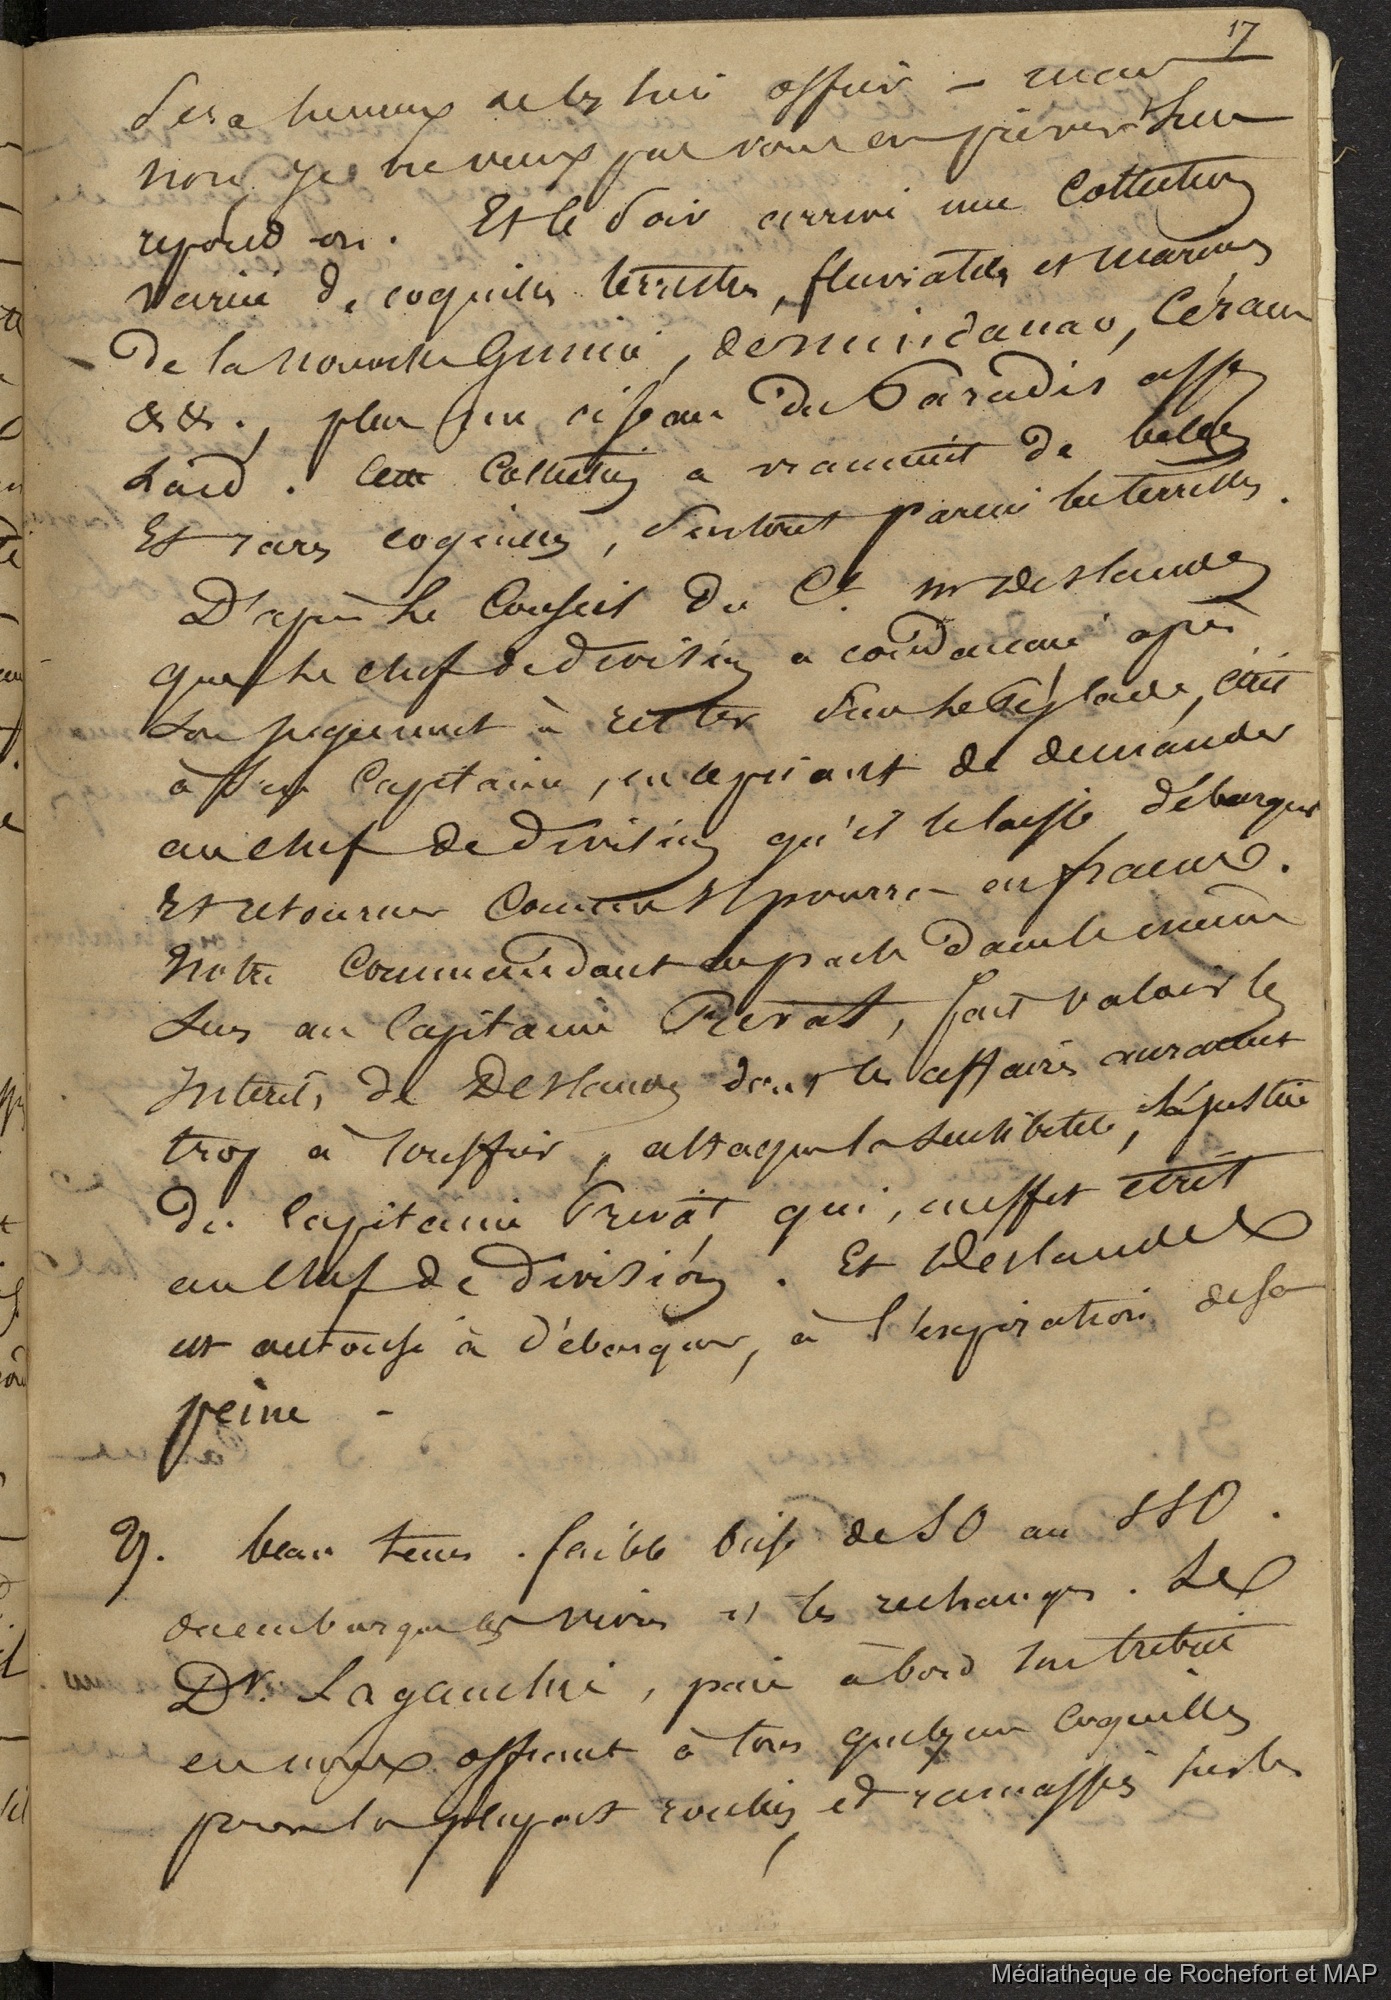 17
Sera heureux de les lui offrir – mais
non, je ne veux pas vous en priver lui
répond on. Et le soir arrive une collection
variée de coquilles terrestres, fluviatiles et marines
de la nouvelle Guinée, de Mindanao, Céram
&&., plus un oiseau de Paradis assez
laid. Cette collection a vraiment de belles
Et rares coquilles, surtout parmi les terrestres.
D'après le Conseil du Ct. Mr Deslandes
que le chef de division a condamné après
son jugement à rester sur le Pylade, écrit
à son Capitaine, en le priant de demander
au chef de division qu'il le laisse débarquer
Et retourner comme il pourra en france.
Notre Commandant parle dans le même
sens au Capitaine Prevat, fait valoir les
Intérêts de Deslandes dont les affaires auraient
trop à souffrir, attaque la sensibilité, la justice
du Capitaine Prevat, qui, en effet écrit
au chef de division. Et Deslandes
est autorisé à débarquer, à l'expiration de sa
peine -
29. beau tems. faible brise de SO au SSO.
on embarque les vivres et les rechanges. Le
Dr. Lagauchie, paie à bord son tribut
en nous offrant à tous quelques coquilles
pour la plupart roulées, et ramassées sur les
Médiathèque de Rochefort et MAP